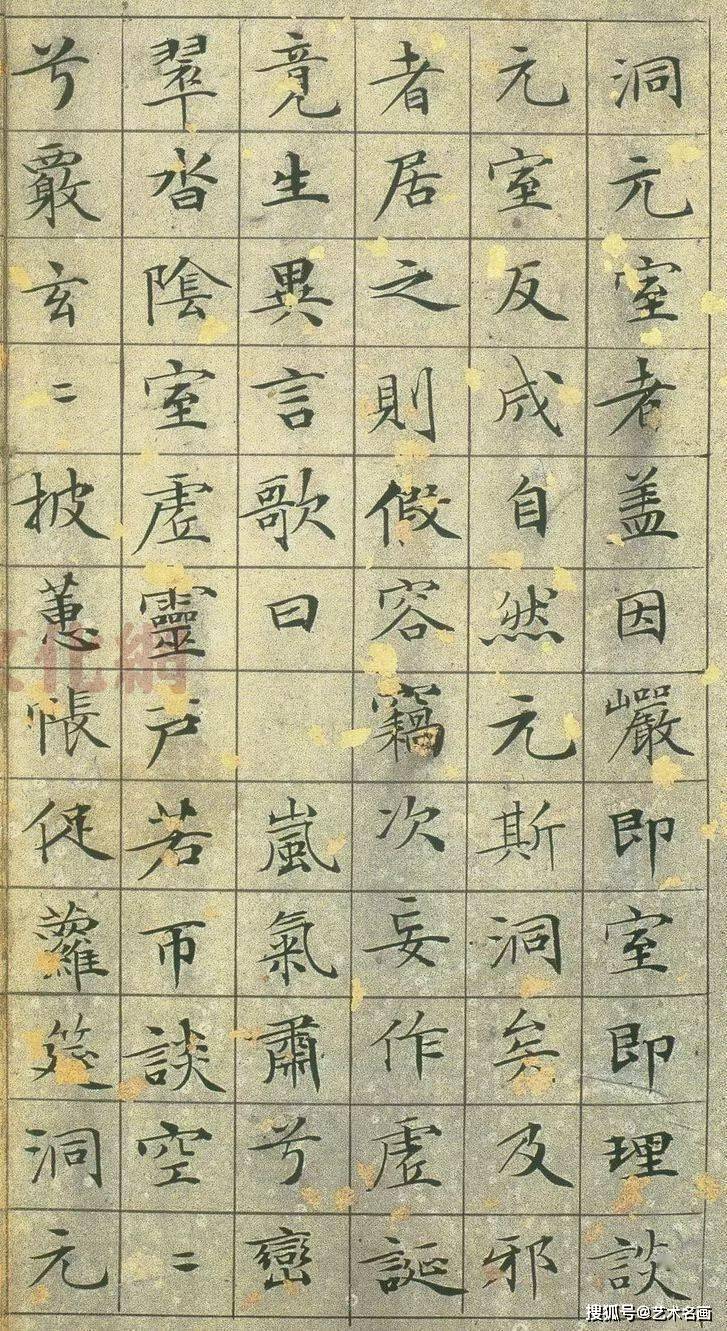 洞元室者盖因巖即室即理談
元室反成自然元斯洞矣及邪
者居之則假容竊次妄作虛誕
竟生異言歌曰　嵐氣肅兮巒
翠沓陰室虛靈户若帀談空〻
兮覈玄〻披蕙帳促蘿筵洞元
化網
搜狐号@艺术名画